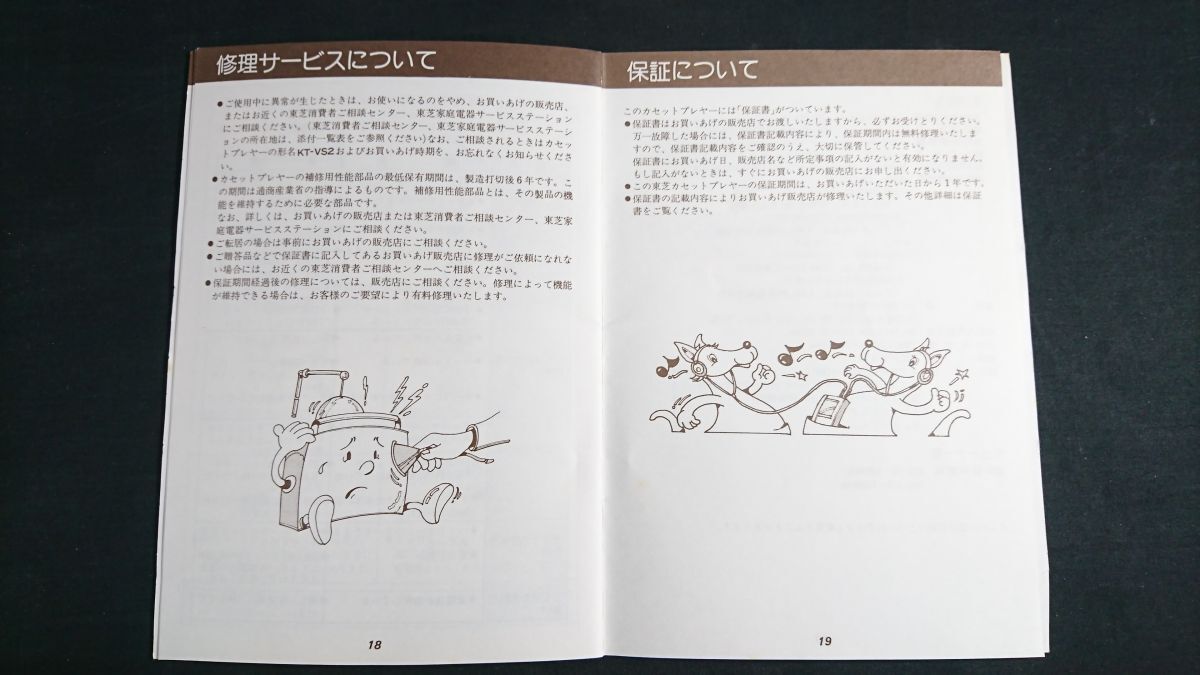 修理サービスについて
●ご使用中に異常が生じたときは、お使いになるのをやめ、お買いあげの販売店、
またはお近くの東芝消費者ご相談センター、東芝家庭電器サービスステーション
にご相談ください。(東芝消費者ご相談センター、東芝家庭電器サービスステーシ
ョンの所在地は、添付一覧表をご参照ください)なお、ご相談されるときはカセッ
トプレヤーの形名KT-VS2およびお買いあげ時期を、お忘れなくお知らせくださ
い。
●カセットプレヤーの補修用性能部品の最低保有期間は、製造打切後6年です。こ
の期間は通商産業省の指導によるものです。補修用性能部品とは、その製品の機
能を維持するために必要な部品です。
なお、詳しくは、お買いあげの販売店または東芝消費者ご相談センター、東芝家
庭電器サービスステーションにご相談ください。
●ご転居の場合は事前にお買いあげの販売店にご相談ください。
●ご贈答品などで保証書に記入してあるお買いあげ販売店に修理がご依頼になれな
い場合には、お近くの東芝消費者ご相談センターへご相談ください。
●保証期間経過後の修理については、販売店にご相談ください。修理によって機能
が維持できる場合は、お客様のご要望により有料修理いたします。
18
保証について
このカセットプレヤーには「保証書」がついています。
●保証書はお買いあげの販売店でお渡しいたしますから、必ずお受けとりください。
万一故障した場合には、保証書記載内容により、保証期間内は無料修理いたしま
すので、保証書記載内容をご確認のうえ、大切に保管してください。
保証書にお買いあげ日、販売店名など所定事項の記入がないと有効になりません。
もし記入がないときは、すぐにお買いあげの販売店にお申し出ください。
●この東芝カセットプレヤーの保証期間は、お買いあげいただいた日から1年です。
●保証書の記載内容によりお買いあげ販売店が修理いたします。その他詳細は保証
書をご覧ください。
19